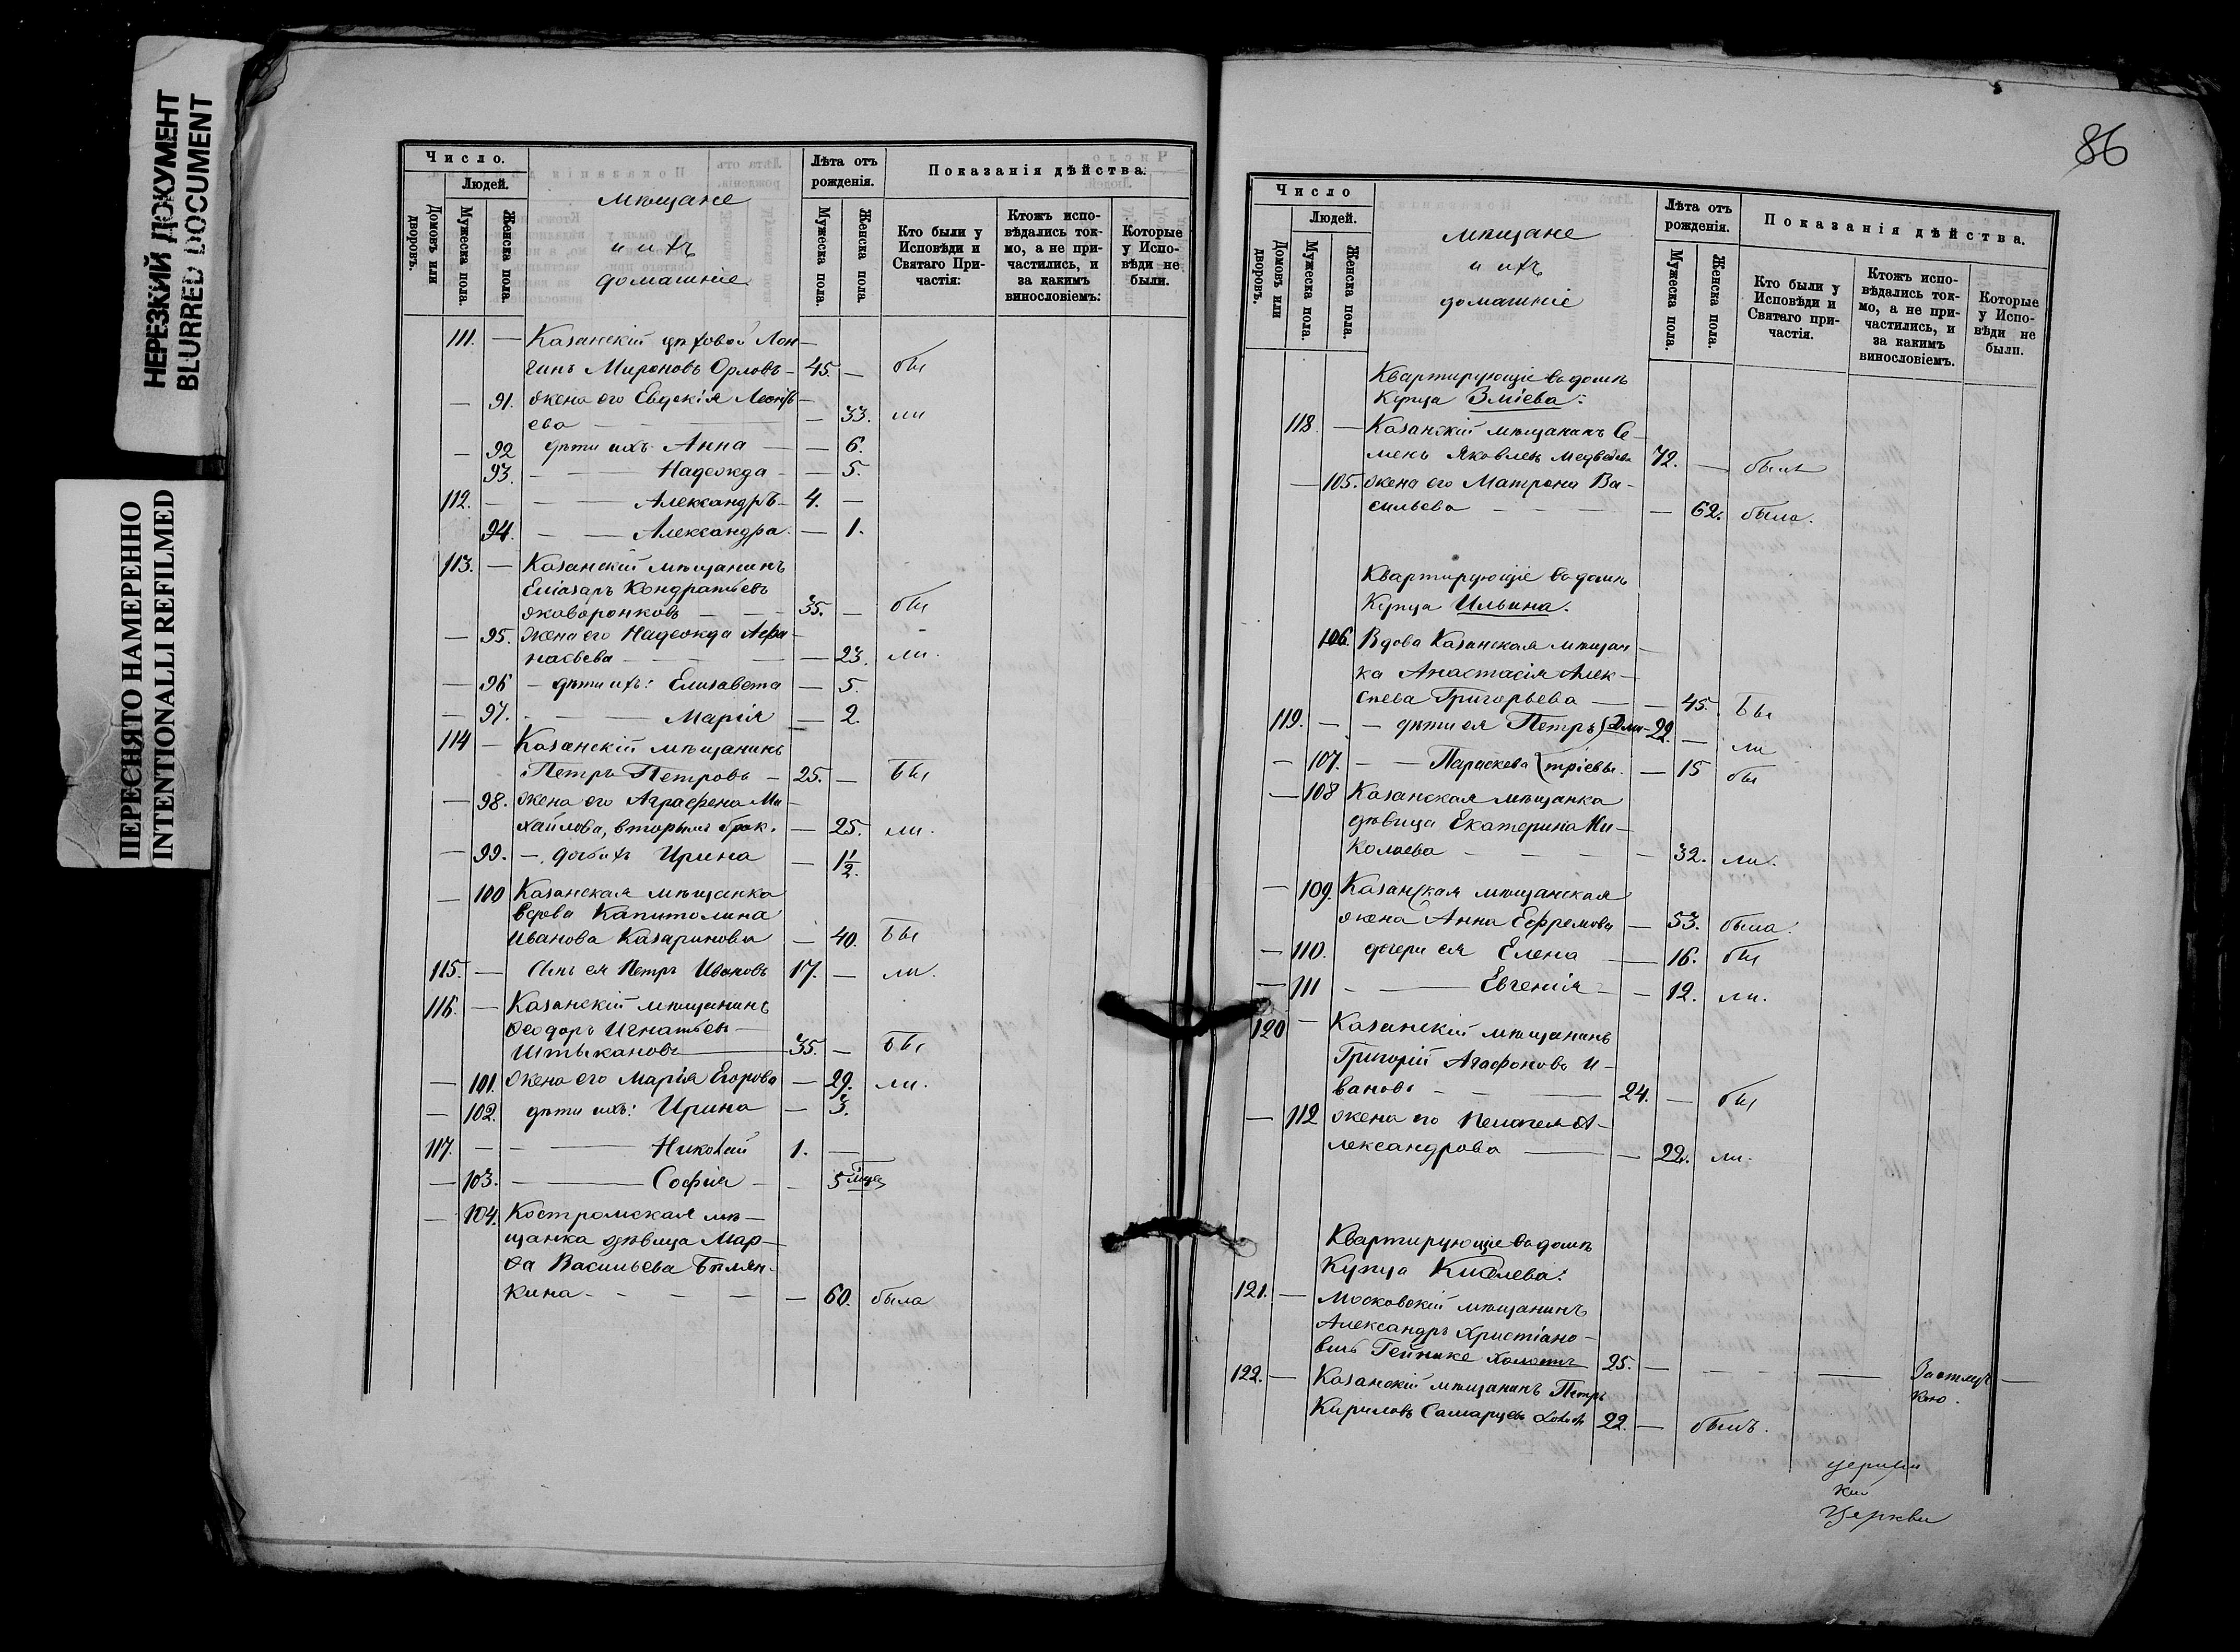 НЕРЕЗКИЙ ДОКУМЕНТ
BLURRED DOCUMENT
ПЕРЕСНЯТО НАМЕРЕННО
INTENTIONALLI REFILMED
Число.
Людей.
Домовъ или дворовъ.
Мужеска пола.
Женска пола.
мѣщане
и ихъ
домашніе
Лѣта отъ рожденія.
Мужеска пола.
Женска пола.
Показанія дѣйства.
Кто были у Исповѣди и Святаго При-частія:
Ктожъ испо-вѣдались ток-мо, а не при-частились, и за какимъ винословіемъ:
Которые у Испо-вѣди не были.
111. — Казанскій цѣховой Лон-
гинъ Мироновъ Орловъ - 45. — бы
— 91. жена его Евдокія Леонтъ-
ева — 33. ли
— 92 дѣти ихъ: Анна — — 6.
93. — Надежда — — 5.
112. — — Александръ - 4. —
94. — — Александра. — 1.
113. — Казанскій мѣщанинъ
Еліазаръ Кондратьевъ
Жаворонковъ — 35. — бы
— 95. жена его Надежда Афа-
насьева — — 23. ли.
— 96 — дѣти ихъ: Елисавета — 5.
— 97. — Марія — 2.
114 — Казанскій мѣщанинъ
Петръ Петровъ — 25. — бы
— 98. жена его Аграфена Ми-
хайлова, вторымъ брак. — 25. ли.
— 99. — дочь ихъ Ирина — 1 1/2.
— 100 Казанская мѣщанка
вдова Капитолина
Иванова Казаринова — 40. бы
115. — Сынъ ея Петръ Ивановъ 17. — ли.
116. — Казанскій мѣщанинъ
Ѳеодоръ Игнатьевъ
Иштыкановъ 35. — бы
— 101. Жена его Марія Егорова — 29. ли.
— 102. дѣти ихъ: Ирина — 3.
117. — — Николай 1. —
— 103. — Софія — — 5 мѣся
— 104. Костромская мѣ-
щанка дѣвица Мар-
ѳа Васильева Бѣлян-
кина — — 60. была
86
Число
Людей.
Домовъ или дворовъ.
Мужеска пола.
Женска пола.
мѣщане
и ихъ
домашніе
Лѣта отъ рожденія.
Мужеска пола.
Женска пола.
Показанія дѣйства.
Кто были у Исповѣди и Святаго при-частія.
Ктожъ испо-вѣдались ток-мо, а не при-частились, и за какимъ винословіемъ.
Которые у Испо-вѣди не были.
Квартирующіе въ домѣ
Купца Змѣева:
118. — Казанскій мѣщанинъ Се-
менъ Яковлевъ Медвѣдевъ 72. — былъ
— 105. жена его Матрона Ва-
сильева — — 62. была.
Квартирующіе въ домѣ
Купца Ильина:
106. Вдова Казанская мѣщан-
ка Анастасія Алек-
сѣева Григорьева — 45. бы
119. — — дѣти ея Петръ } Дми- 22. — ли
— 107. — — Параскева } тріевы. — 15 бы
— 108 Казанская мѣщанка
дѣвица Екатерина Ни-
колаева — — 32. ли.
— 109. Казанская мѣщанская
жена Анна Ефремова — 53. была.
— 110. дѣчери ея Елена — 16. бы
— 111 — Евгенія — 12. ли.
120 — Казанскій мѣщанинъ
Григорій Агафоновъ И-
вановъ — 24. — бы
— 112 жена его Пелагея А-
лександрова — — 22. ли.
Квартирующіе въ домѣ
Купца Киселева:
121. — Московскій мѣщанинъ
Александръ Христіано-
вичъ Гейнике холостъ 25. — — — За отлуч-
кою.
122. — Казанскій мѣщанинъ Петръ
Кириловъ Самарцевъ холостъ 22. — былъ.
Церкви